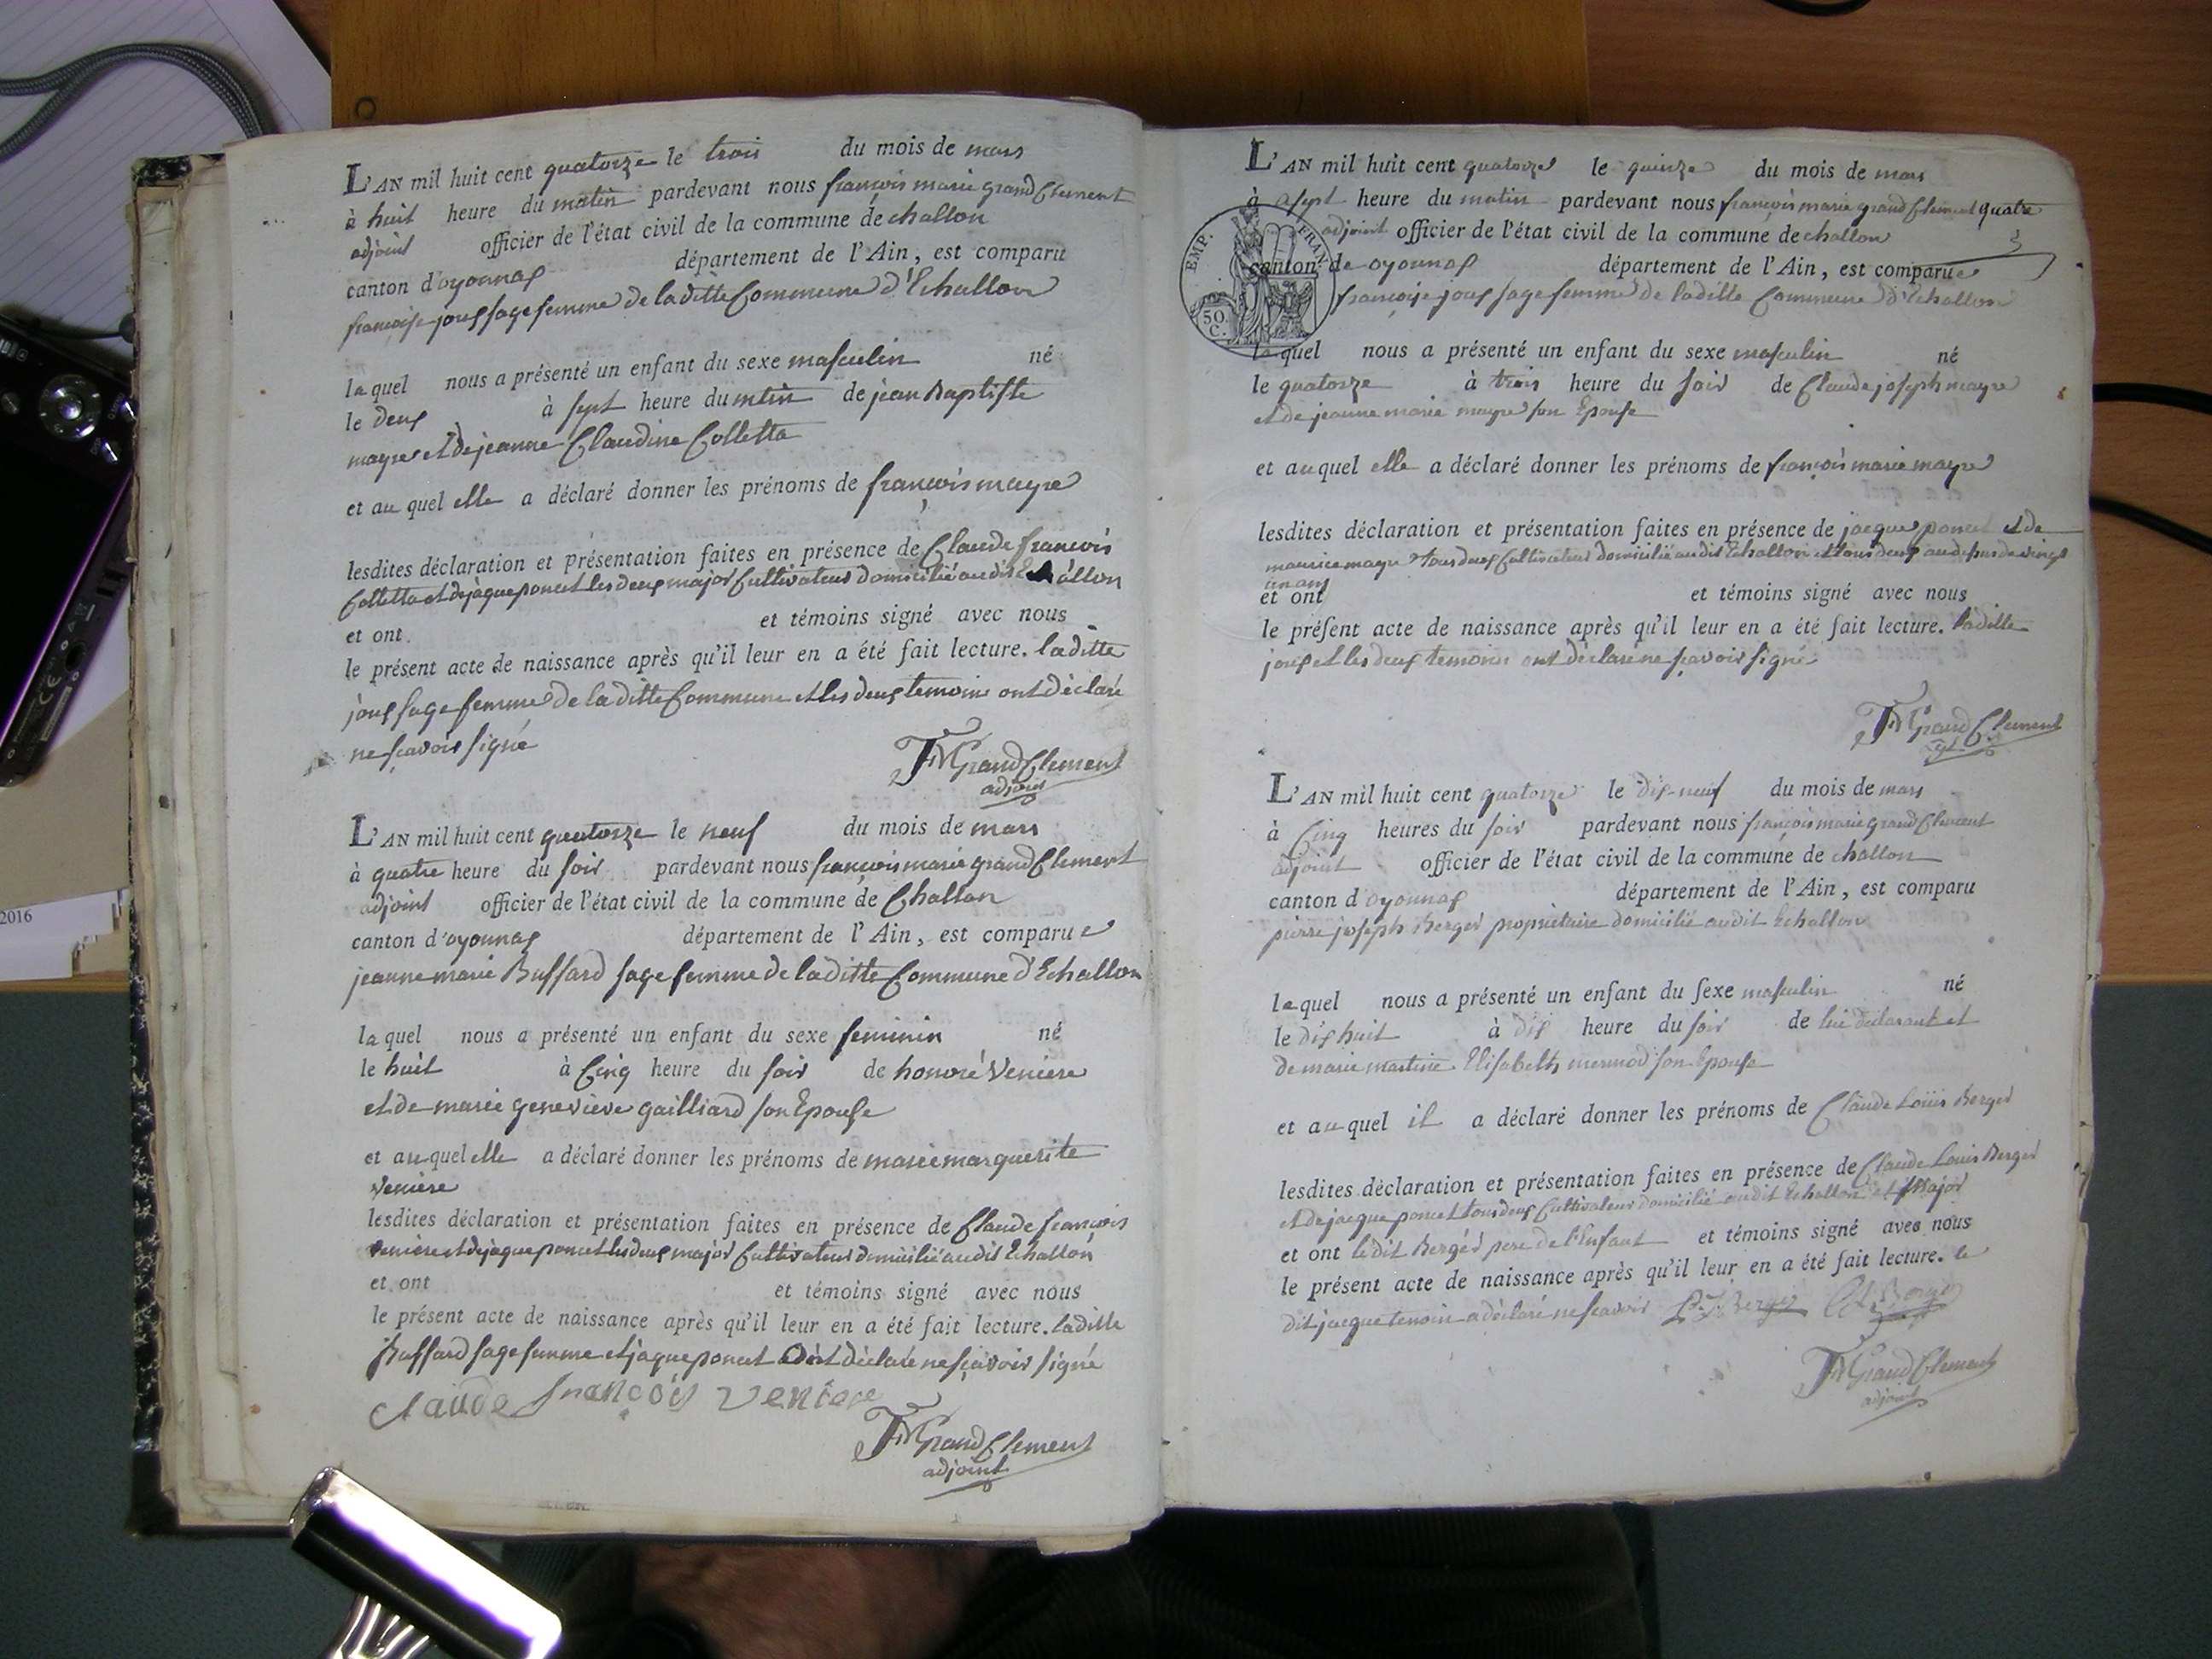 L'AN mil huit cent quatorze le trois du mois de mars
à huit heure du matin pardevant nous françois marie grand Clement
adjoint officier de l'état civil de la commune de challon
canton d'oyonnax département de l'Ain, est comparu
françoise joux sage femme de la ditte Commune d'Echallon
laquel nous a présenté un enfant du sexe masculin né
le deux à sept heure du mtin de jean Baptiste
mayre et de jeanne Claudine Colletta
et au quel elle a déclaré donner les prénoms de françois mayre
lesdites déclaration et présentation faites en présence de Claude francois
Colletta et de jaque poncet les deux major Cultivateur domicilié audit Echallon
et ont et témoins signé avec nous
le présent acte de naissance après qu'il leur en a été fait lecture. la ditte
joux sage femme de la ditte Commune et les deux temoins ont déclaré
ne sçavoir signé
FMGrandClement
adjoint
L'AN mil huit cent quatorze le neuf du mois de mars
à quatre heure du soir pardevant nous françois marie grand Clement
adjoint officier de l'état civil de la commune de Challon
canton d'oyonnax département de l'Ain, est comparue
jeanne marie Buffard sage femme de la ditte Commune d'Echallon
laquel nous a présenté un enfant du sexe feminin né
le huit à Cinq heure du soir de honoré Veniere
et de marie genevieve gailliard son Epouse
et au quel elle a déclaré donner les prénoms de marie marguerite
Veniere
lesdites déclaration et présentation faites en présence de Claude francois
Veniere et de jaque poncet les deux major Cultivateur domicilié audit Echallon
et ont et témoins signé avec nous
le présent acte de naissance après qu'il leur en a été fait lecture. la ditte
Buffard sage femme et jaque poncet ont déclaré ne sçavoir signé
claude francois veniere
FMGrandClement
adjoint
L'AN mil huit cent quatorze le quinze du mois de mars
à sept heure du matin pardevant nous françois marie grand Clement quatre
adjoint officier de l'état civil de la commune de challon
canton de oyonnax département de l'Ain, est comparue
françoise joux sage femme de la ditte Commune d'Echallon
EMP. FRAN.
50 C.
laquel nous a présenté un enfant du sexe masculin né
le quatorze à trois heure du soir de Claude joseph mayre
et de jeanne marie mayre son Epouse
et au quel elle a déclaré donner les prénoms de françois marie mayre
lesdites déclaration et présentation faites en présence de jacque poncet et de
maurice mayre tous deux Cultivateur domicilié audit Echallon et tous deux au dessus de vingt
un ans
et ont et témoins signé avec nous
le présent acte de naissance après qu'il leur en a été fait lecture. la ditte
joux et les deux temoins ont déclaré ne sçavoir signé
FMGrandClement
L'AN mil huit cent quatorze le dix-neuf du mois de mars
à Cinq heures du soir pardevant nous françois marie grand Clement
adjoint officier de l'état civil de la commune de challon
canton d'oyonnax département de l'Ain, est comparu
pierre joseph Berger propriétaire domicilié audit Echallon
lequel nous a présenté un enfant du sexe masculin né
le dix huit à dix heure du soir de lui déclarant et
de marie martine Elisabeth mermod son Epouse
et au quel il a déclaré donner les prénoms de Claude Louis Berger
lesdites déclaration et présentation faites en présence de Claude Louis Berger
et de jacque poncet tous deux Cultivateur domicilié audit Echallon et Major
et ont ledit Berger pere de l'Enfant et témoins signé avec nous
le présent acte de naissance après qu'il leur en a été fait lecture. le
dit jacque temoin a déclaré ne scavoir P. J. Berger Cl Berger
FMGrandClement
adjoint
2016